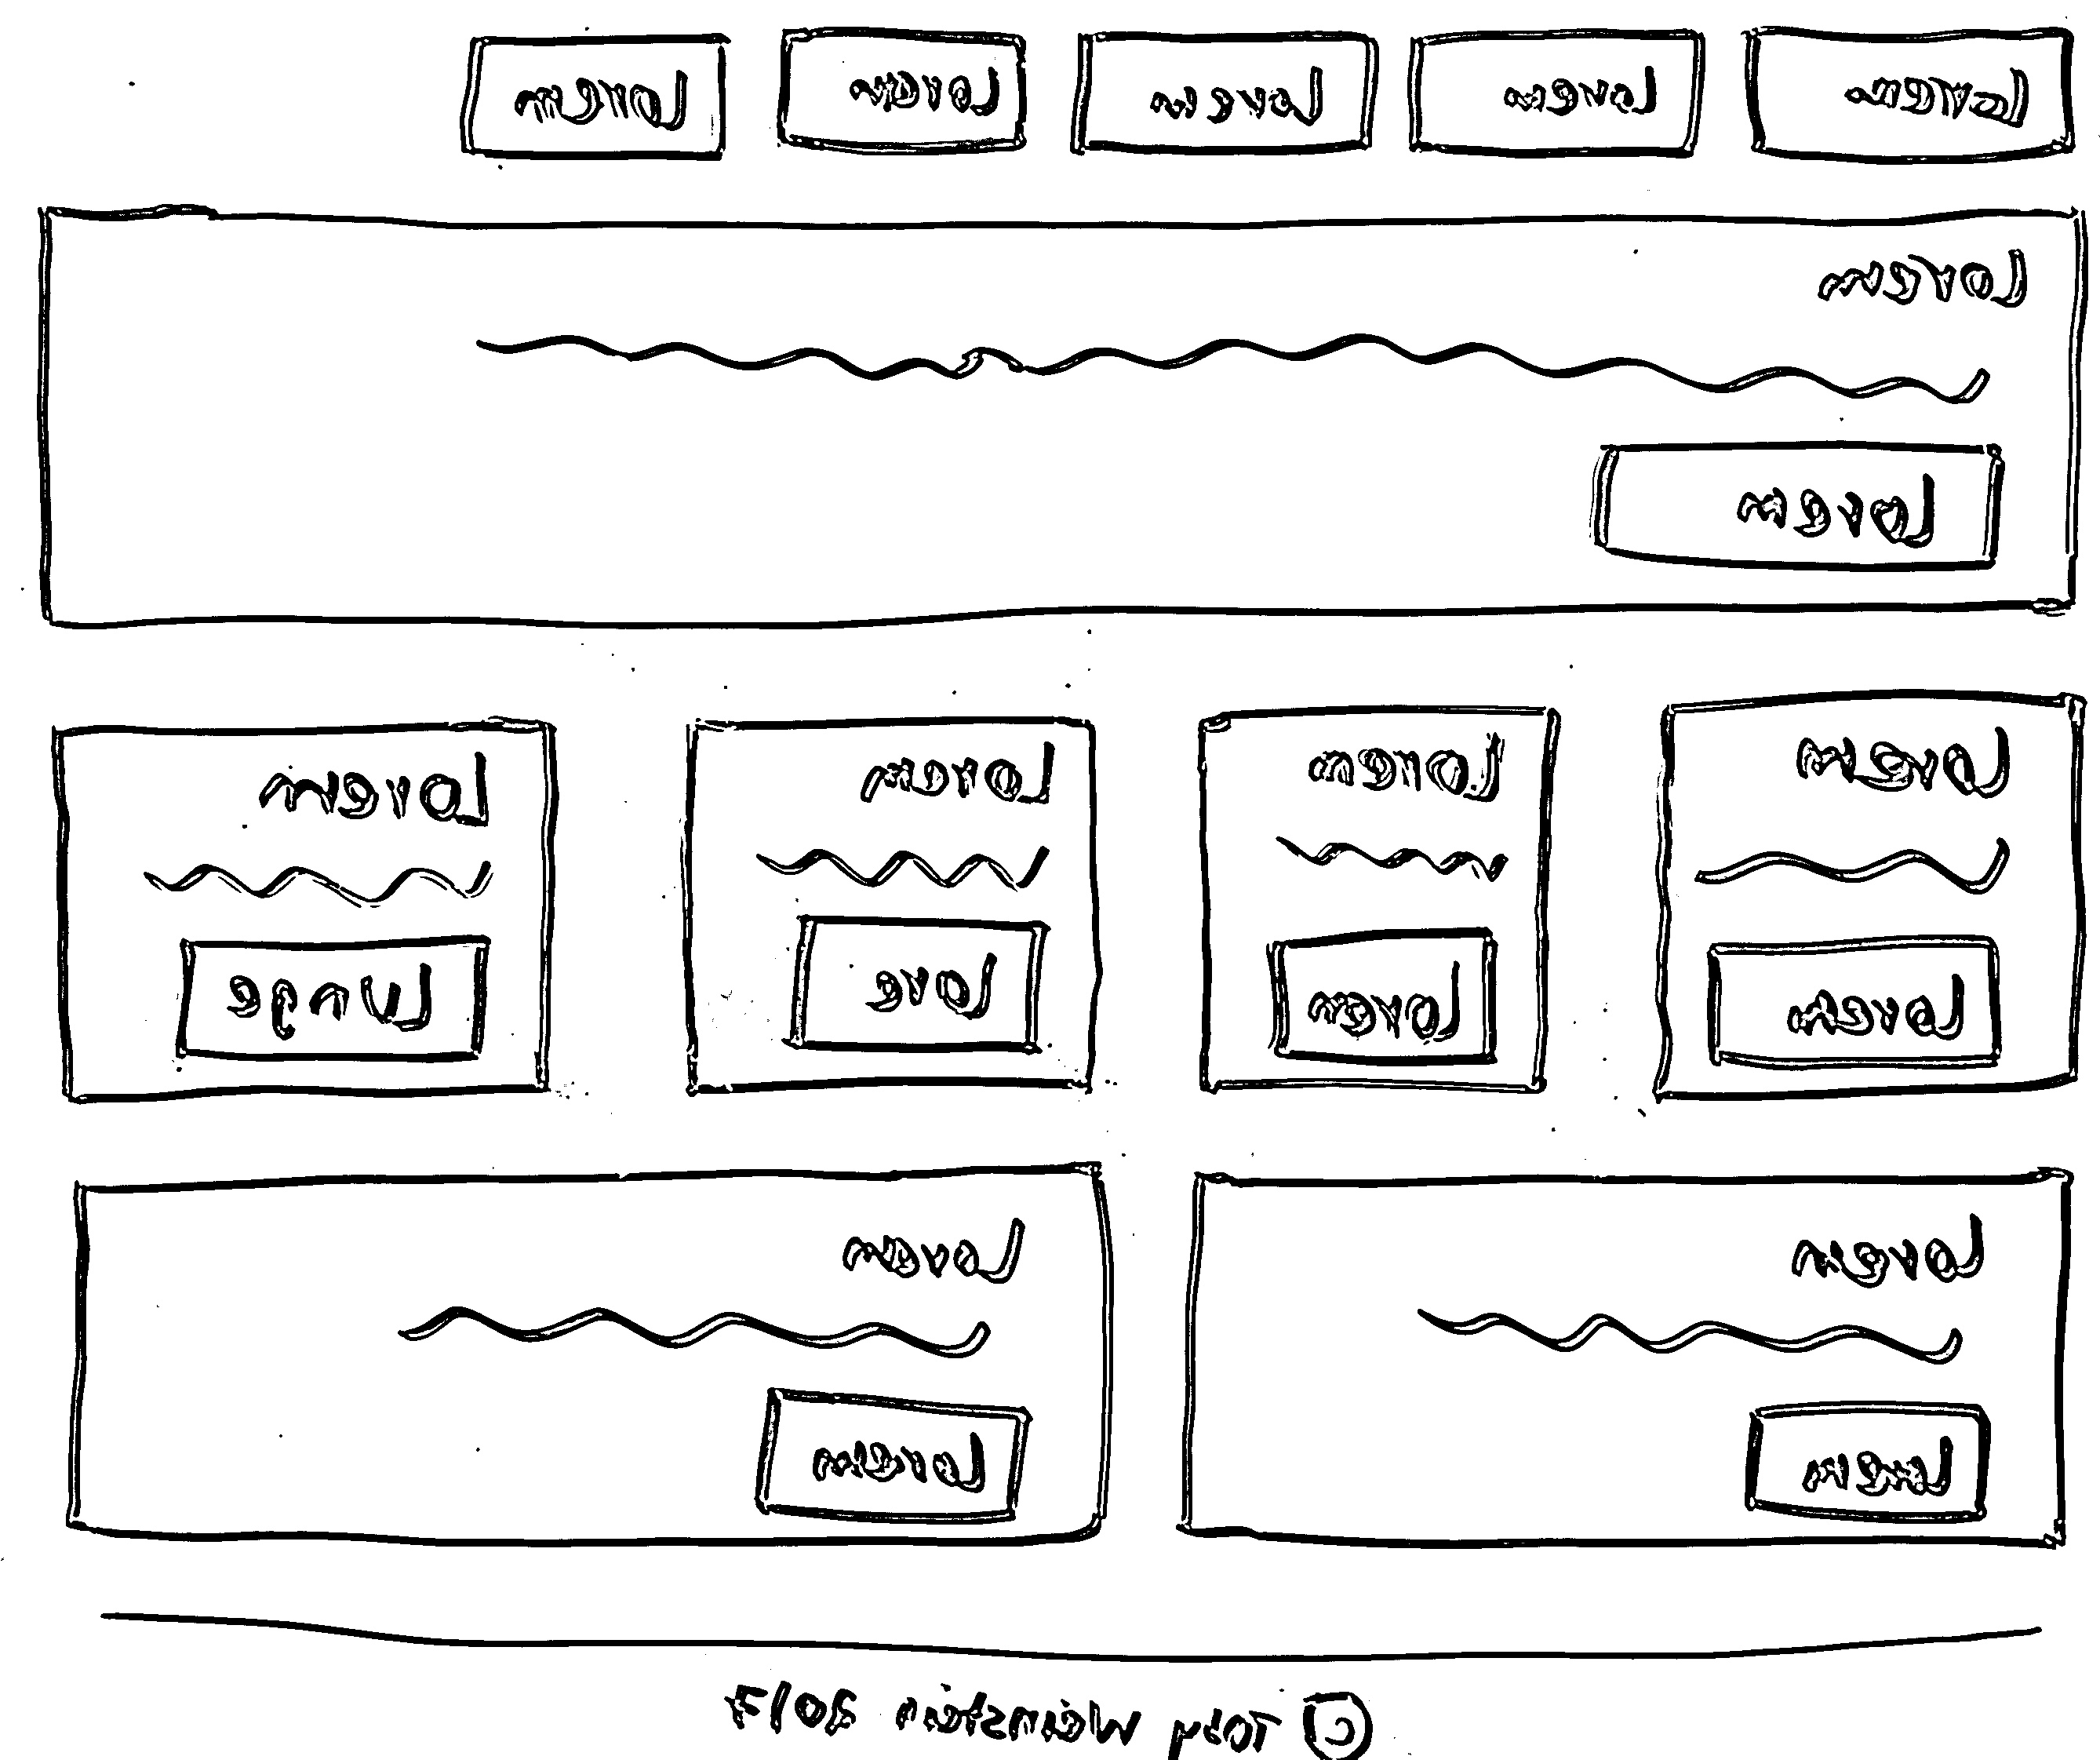 Lorem Lorem Lorem Lorem Lorem
Lorem
Lorem
Lorem Lorem Lorem Lorem
Lorem Lorem Lore Lunge
Lorem Lorem
Lorem Lorem
© Toby Weinstein 2017